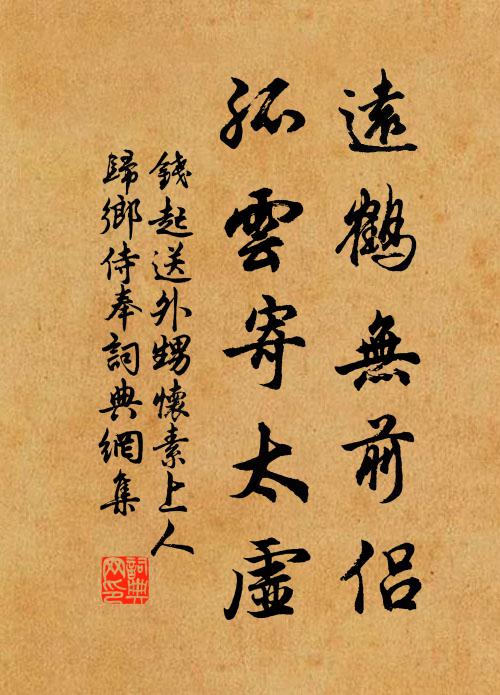 遠鶴無前侶
孤雲寄太虛
錢起送外甥懷素上人
歸鄉侍奉詞典網集
詞典网印